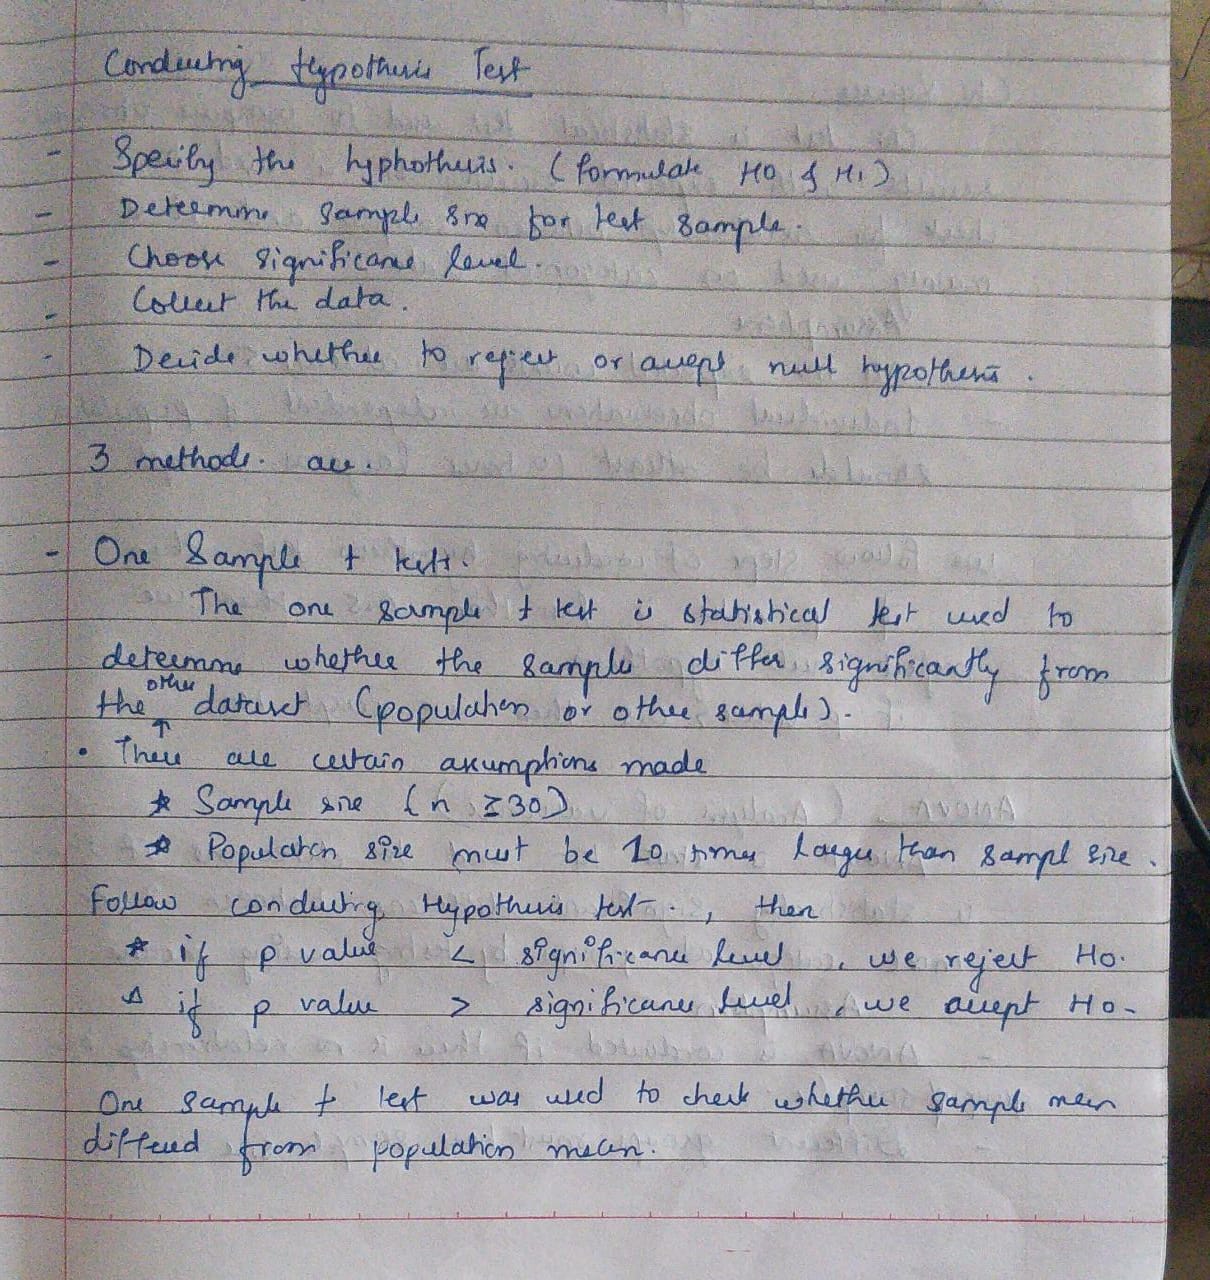 Conducting Hypothesis Test
- Specify the hyphothesis. (formulate H0 & H1)
- Determine sample size for test sample.
- Choose significance level.
- Collect the data.
- Decide whether to reject or accept null hypothesis.
3 methods. are.
- One Sample t test.
The one sample t test is statistical test used to
determine whether the sample differ significantly from
the other dataset (population or other sample).
• There are certain assumptions made
* Sample size (n ≥30)
* Population size must be 10 times larger than sampl size.
Follow conducting Hypothesis test., then
* if p value < significance level, we reject H0.
* if p value > significance level, we accept H0.
One sample t test was used to check whether sample mean
differed from population mean.